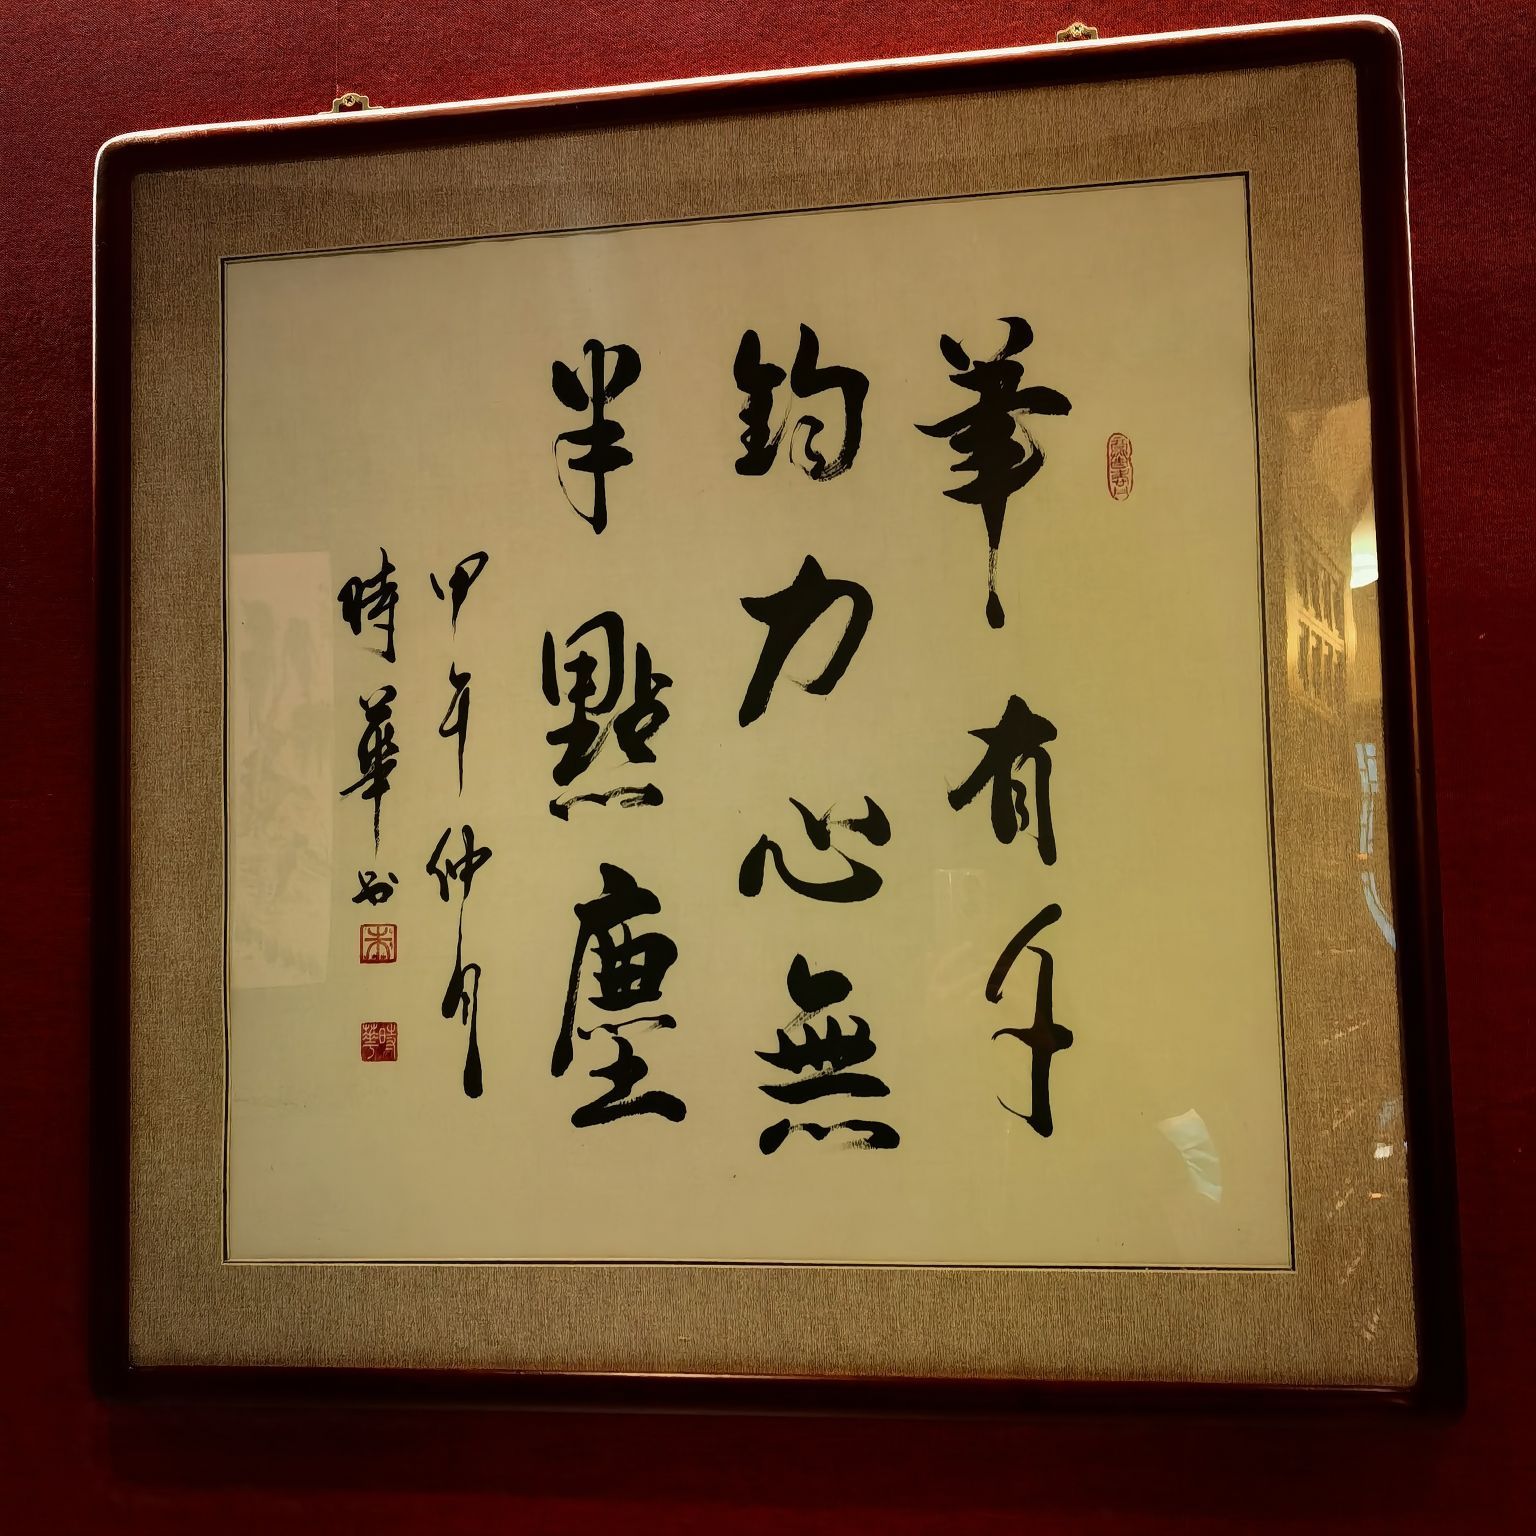 筆有千
鈞力心無
半點塵
甲午仲月
時華書
時華